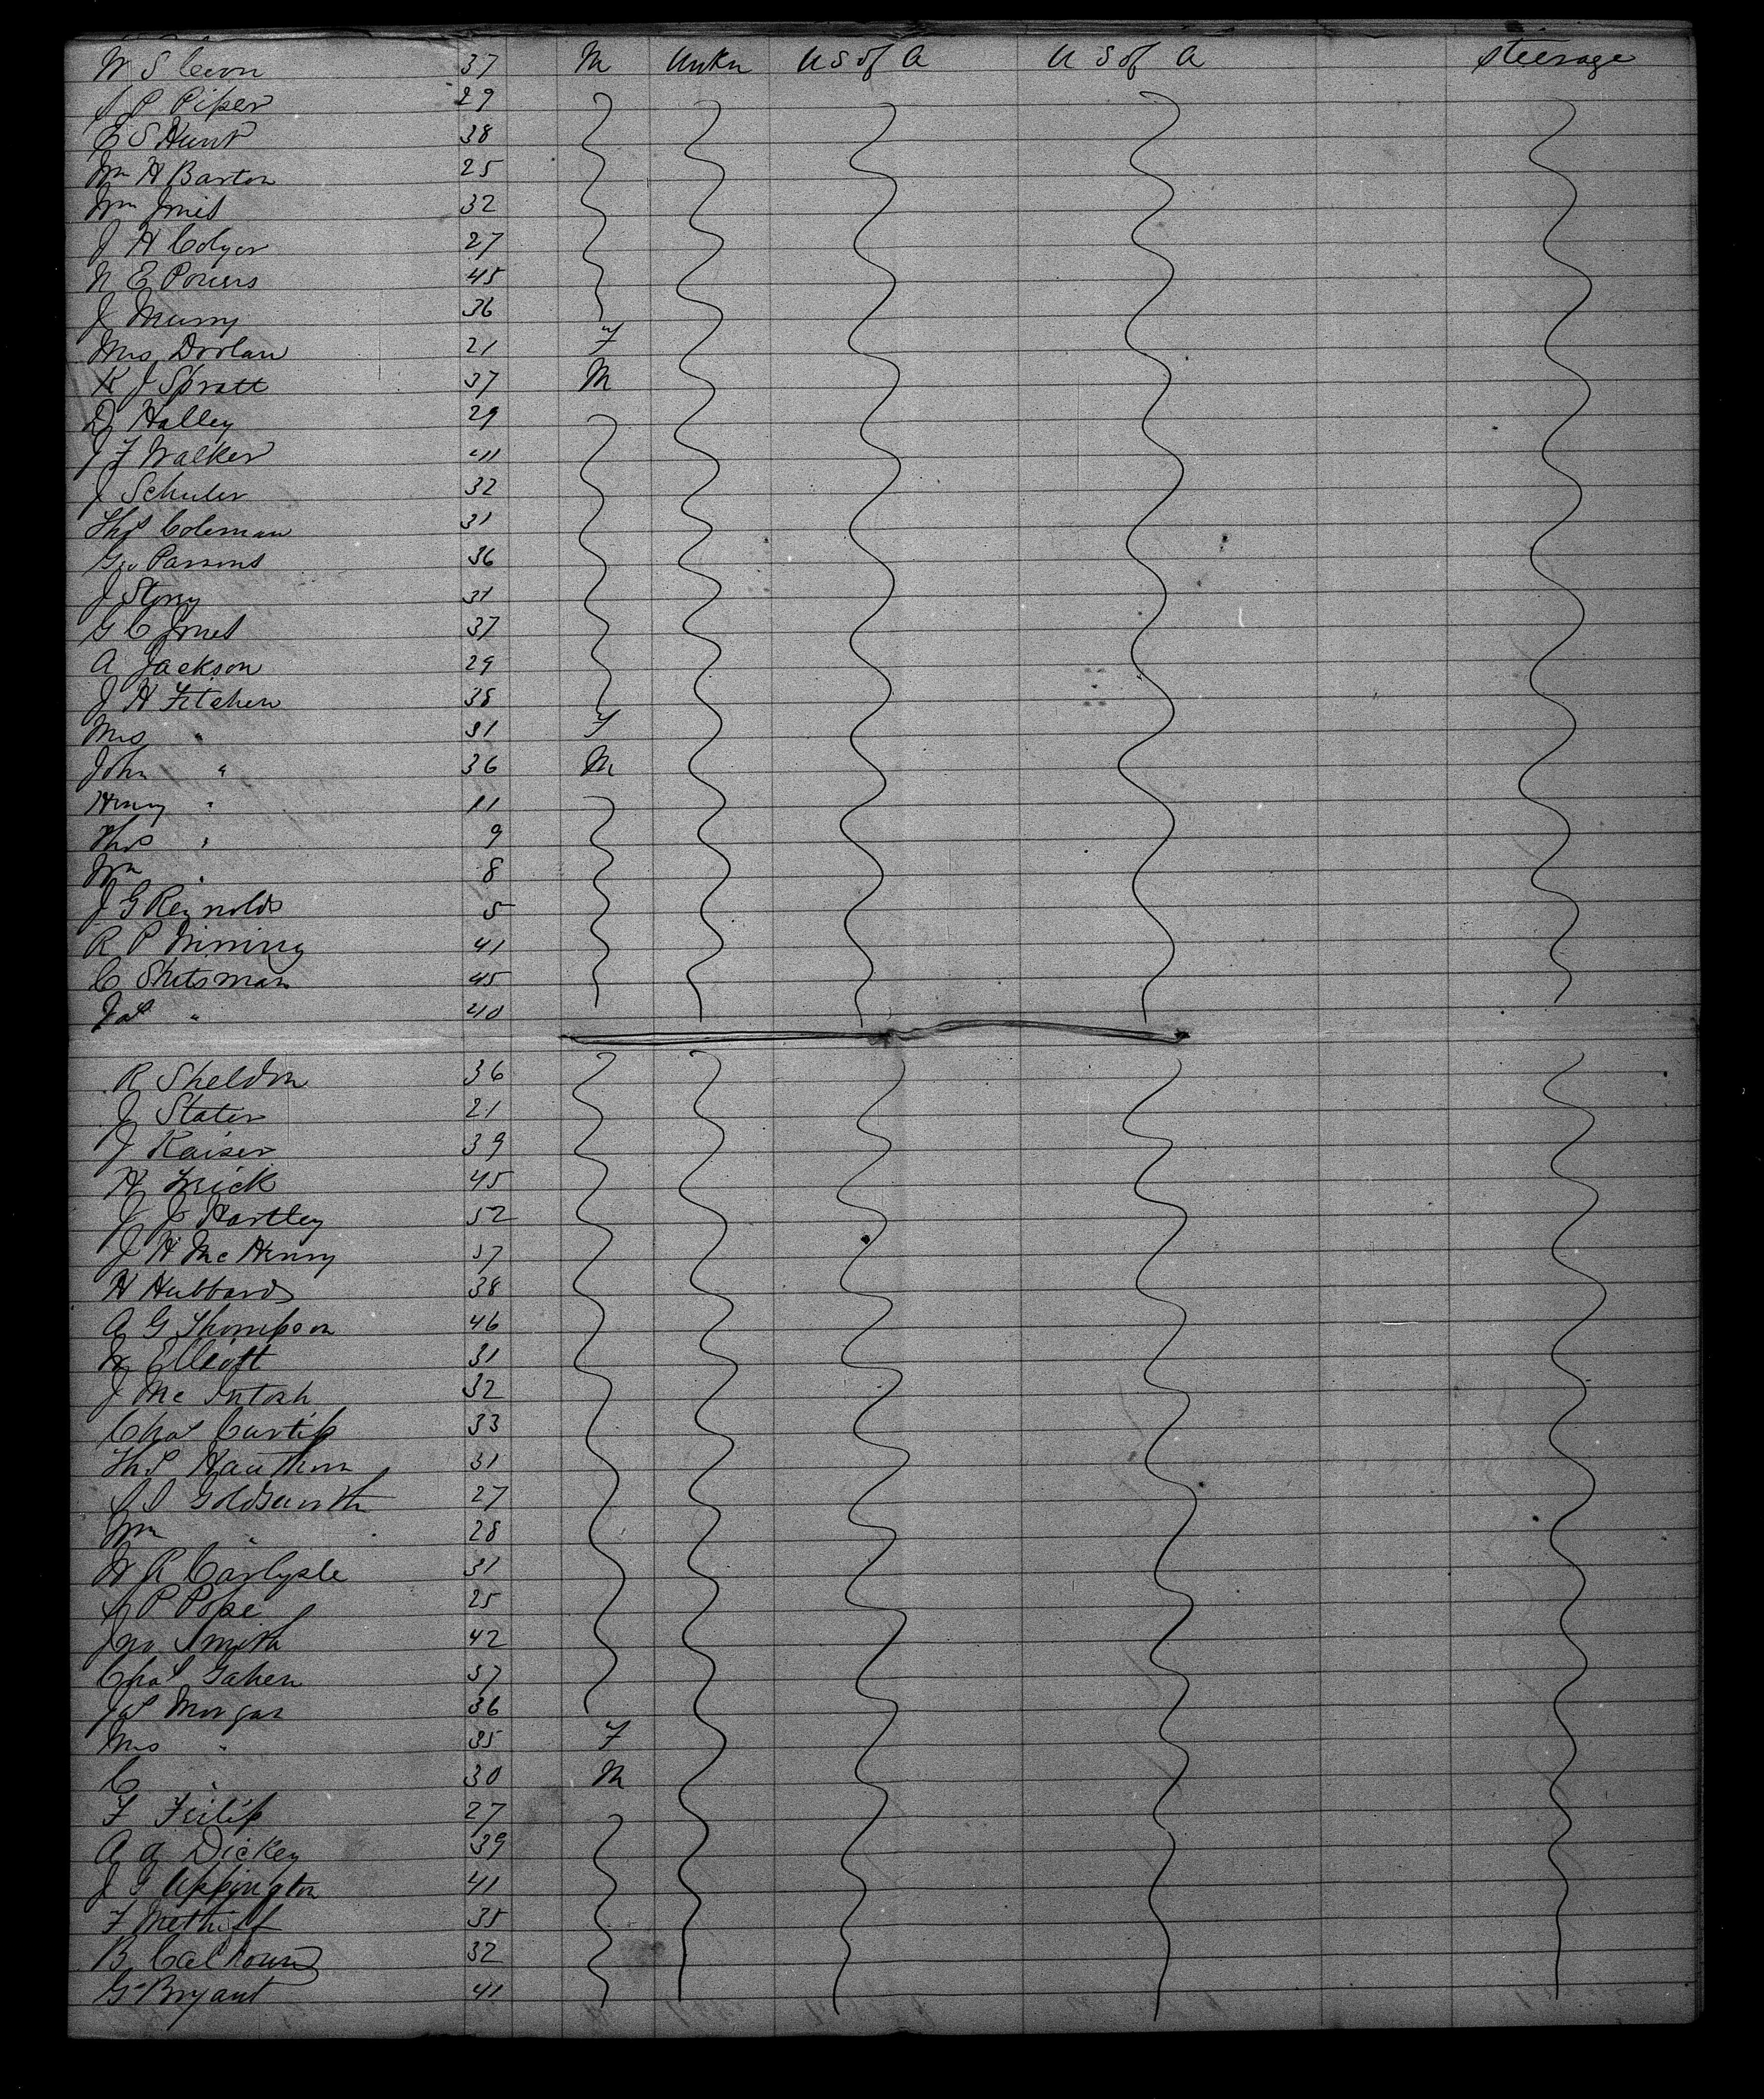 W S 37 M Unkn U S of A U S of A Steerage
S P Piper 29
E S Hunt 38
Wm H Barton 25
Wm Jones 32
J H Colyer 27
N E Powers 45
J Murry 36
Mrs Doolan 21 F
R J Spratt 37 M
D Halley 29
J F Walker 41
J Schuler 32
Thos Coleman 31
Geo Parsons 36
J Story 31
G C Jones 37
A Jackson 29
J H Fitchen 38
Mrs " 31 F
John " 36 M
Henry " 11
Thos " 9
Wm " 8
J G Reynolds 5
R P 41
C Shutsman 45
Jas " 40
R Sheldon 36
J Stater 21
J Kaiser 39
H Frick 45
J J Hartley 52
J H McHenry 37
H Hubbard 38
A G Thompson 46
W Elliott 31
J McIntosh 32
Chas Curtis 33
Thos Hauthorn 31
S S Goldsworth 27
Wm " 28
W R Carlysle 31
S P Pope 25
Jno Smith 42
Chas Gahen 37
Jas Morgan 36
Mrs " 35 F
C " 30 M
F 27
A A Dickey 39
J G Uppington 41
F 35
B Calhoun 32
G Bryant 41